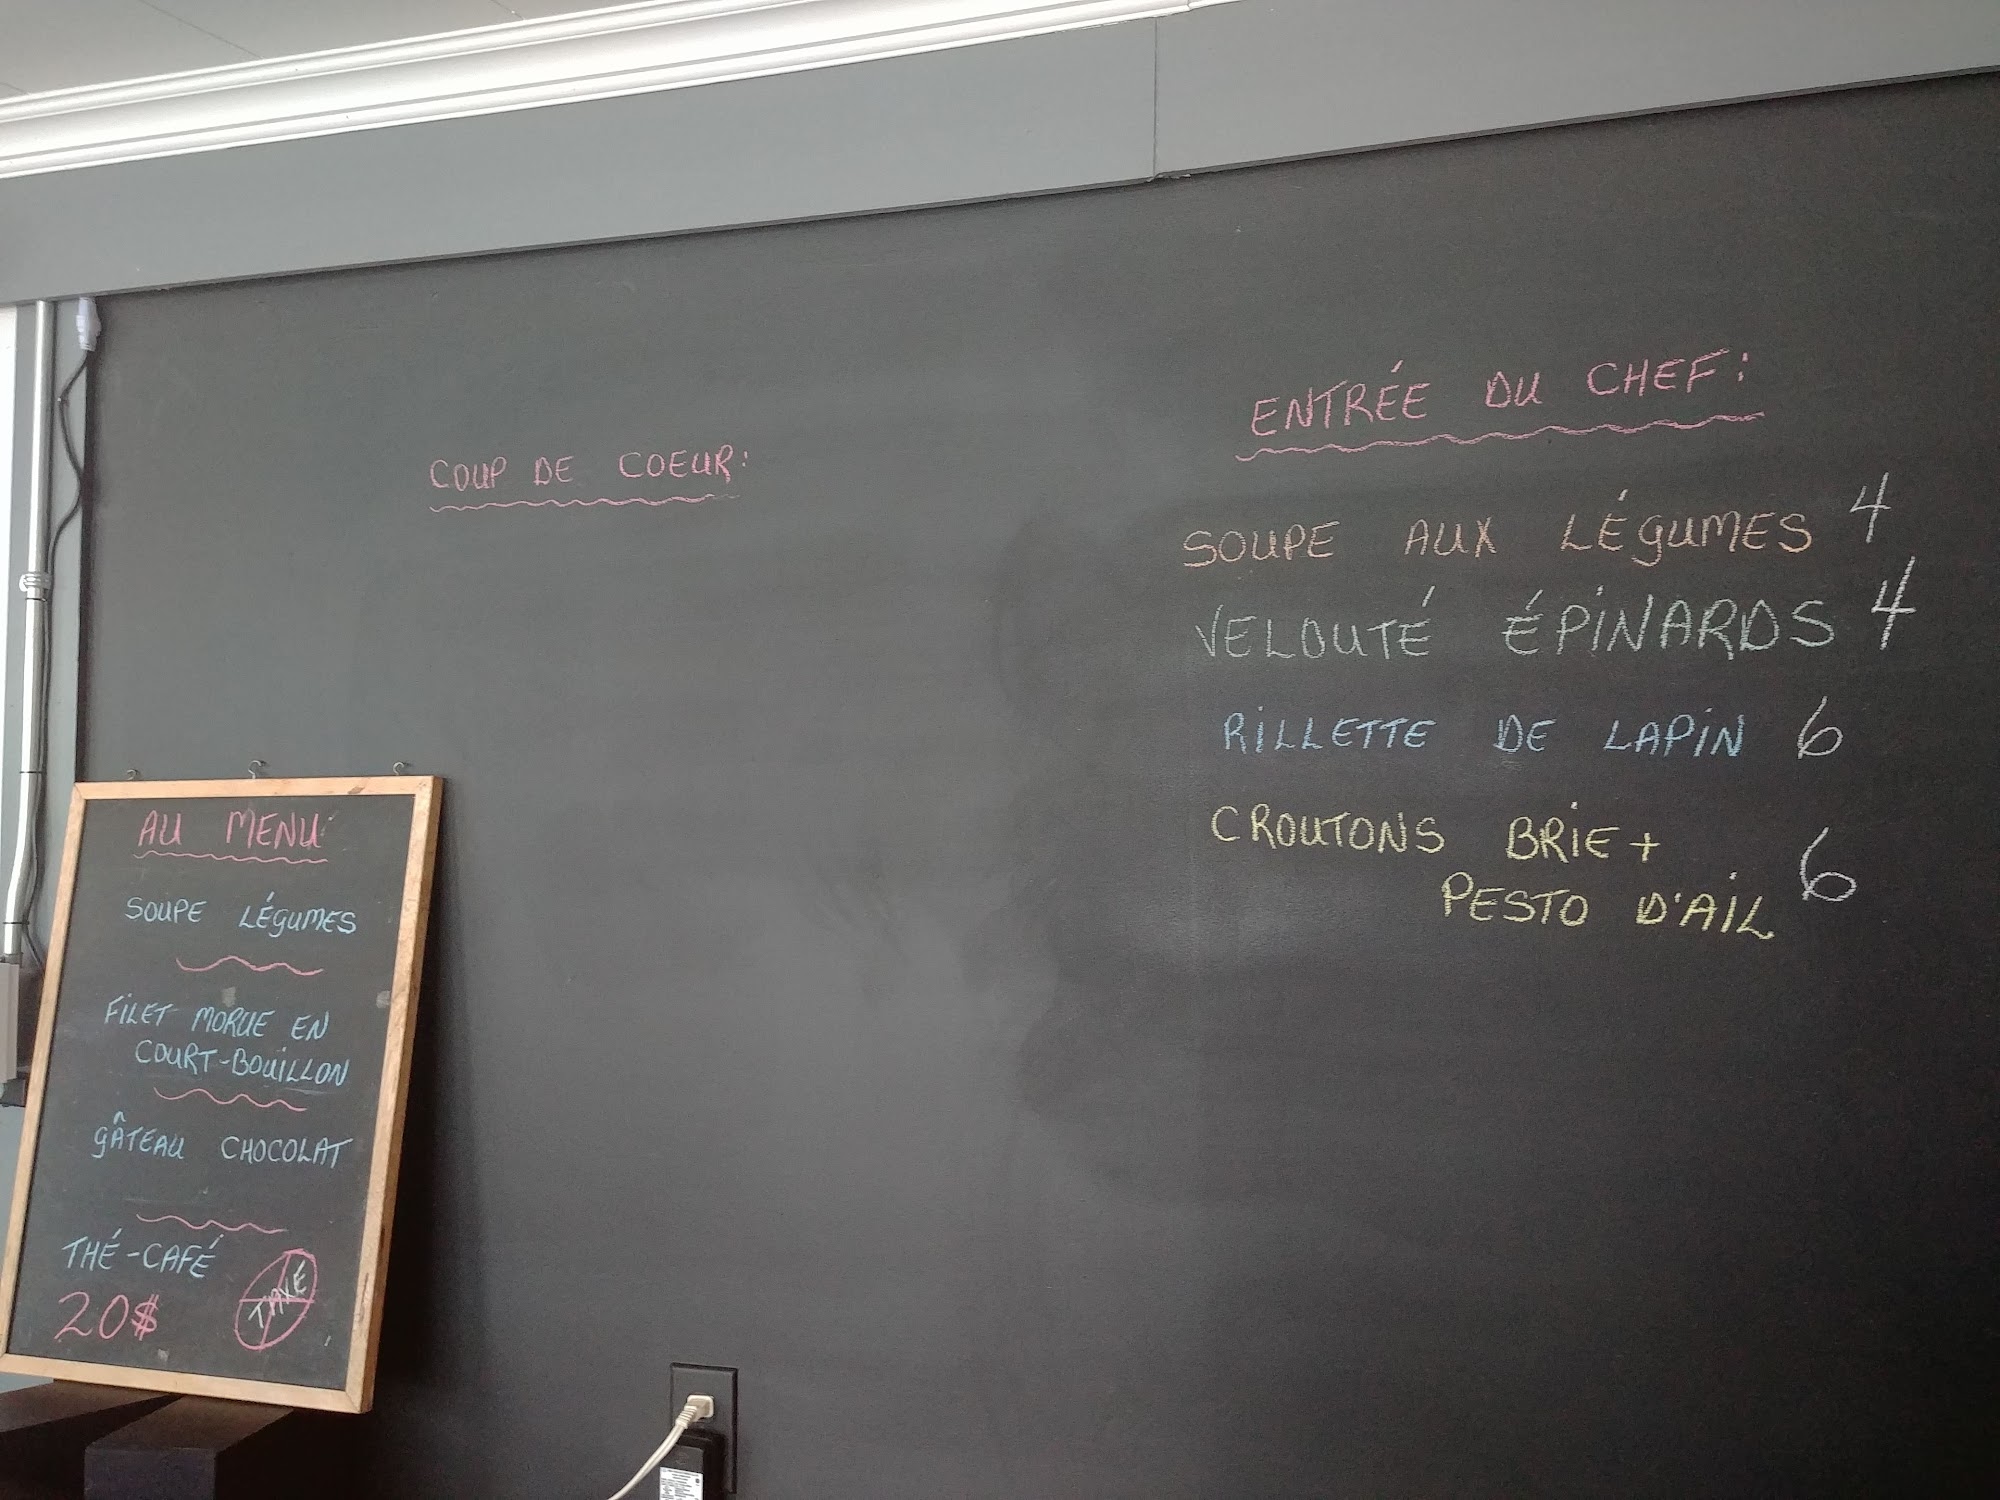 COUP DE COEUR:
ENTRÉE DU CHEF:
SOUPE AUX LÉGUMES 4
VELOUTÉ ÉPINARDS 4
RILLETTE DE LAPIN 6
CROUTONS BRIE +
PESTO D'AIL 6
AU MENU
SOUPE LÉGUMES
FILET MORUE EN
COURT-BOUILLON
GÂTEAU CHOCOLAT
THÉ-CAFÉ
20$
TAXE